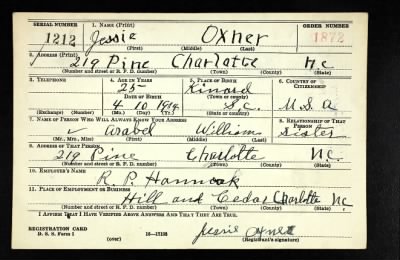 SERIAL NUMBER 1. NAME (Print) ORDER NUMBER
1212 Jessie Oxner 1872
(First) (Middle) (Last)
2. ADDRESS (Print)
219 Pine Charlotte N.C
(Number and street or R. F. D. number) (Town) (County) (State)
3. TELEPHONE 4. AGE IN YEARS 5. PLACE OF BIRTH 6. COUNTRY OF CITIZENSHIP
25 Kinard
DATE OF BIRTH (Town or county)
4 10 1914 S.C. U.S.A
(Exchange) (Number) (Mo.) (Day) (Yr.) (State or country)
7. NAME OF PERSON WHO WILL ALWAYS KNOW YOUR ADDRESS 8. RELATIONSHIP OF THAT PERSON
Arabel William Sister
(Mr., Mrs., Miss) (First) (Middle) (Last)
9. ADDRESS OF THAT PERSON
219 Pine Charlotte N.C.
(Number and street or R. F. D. number) (Town) (County) (State)
10. EMPLOYER'S NAME
R. P. Hancock
11. PLACE OF EMPLOYMENT OR BUSINESS
Hill and Cedar Charlotte N.C
(Number and street or R. F. D. number) (Town) (County) (State)
I AFFIRM THAT I HAVE VERIFIED ABOVE ANSWERS AND THAT THEY ARE TRUE.
REGISTRATION CARD
D. S. S. Form 1 (over) Jessie Oxner
(Registrant's signature)